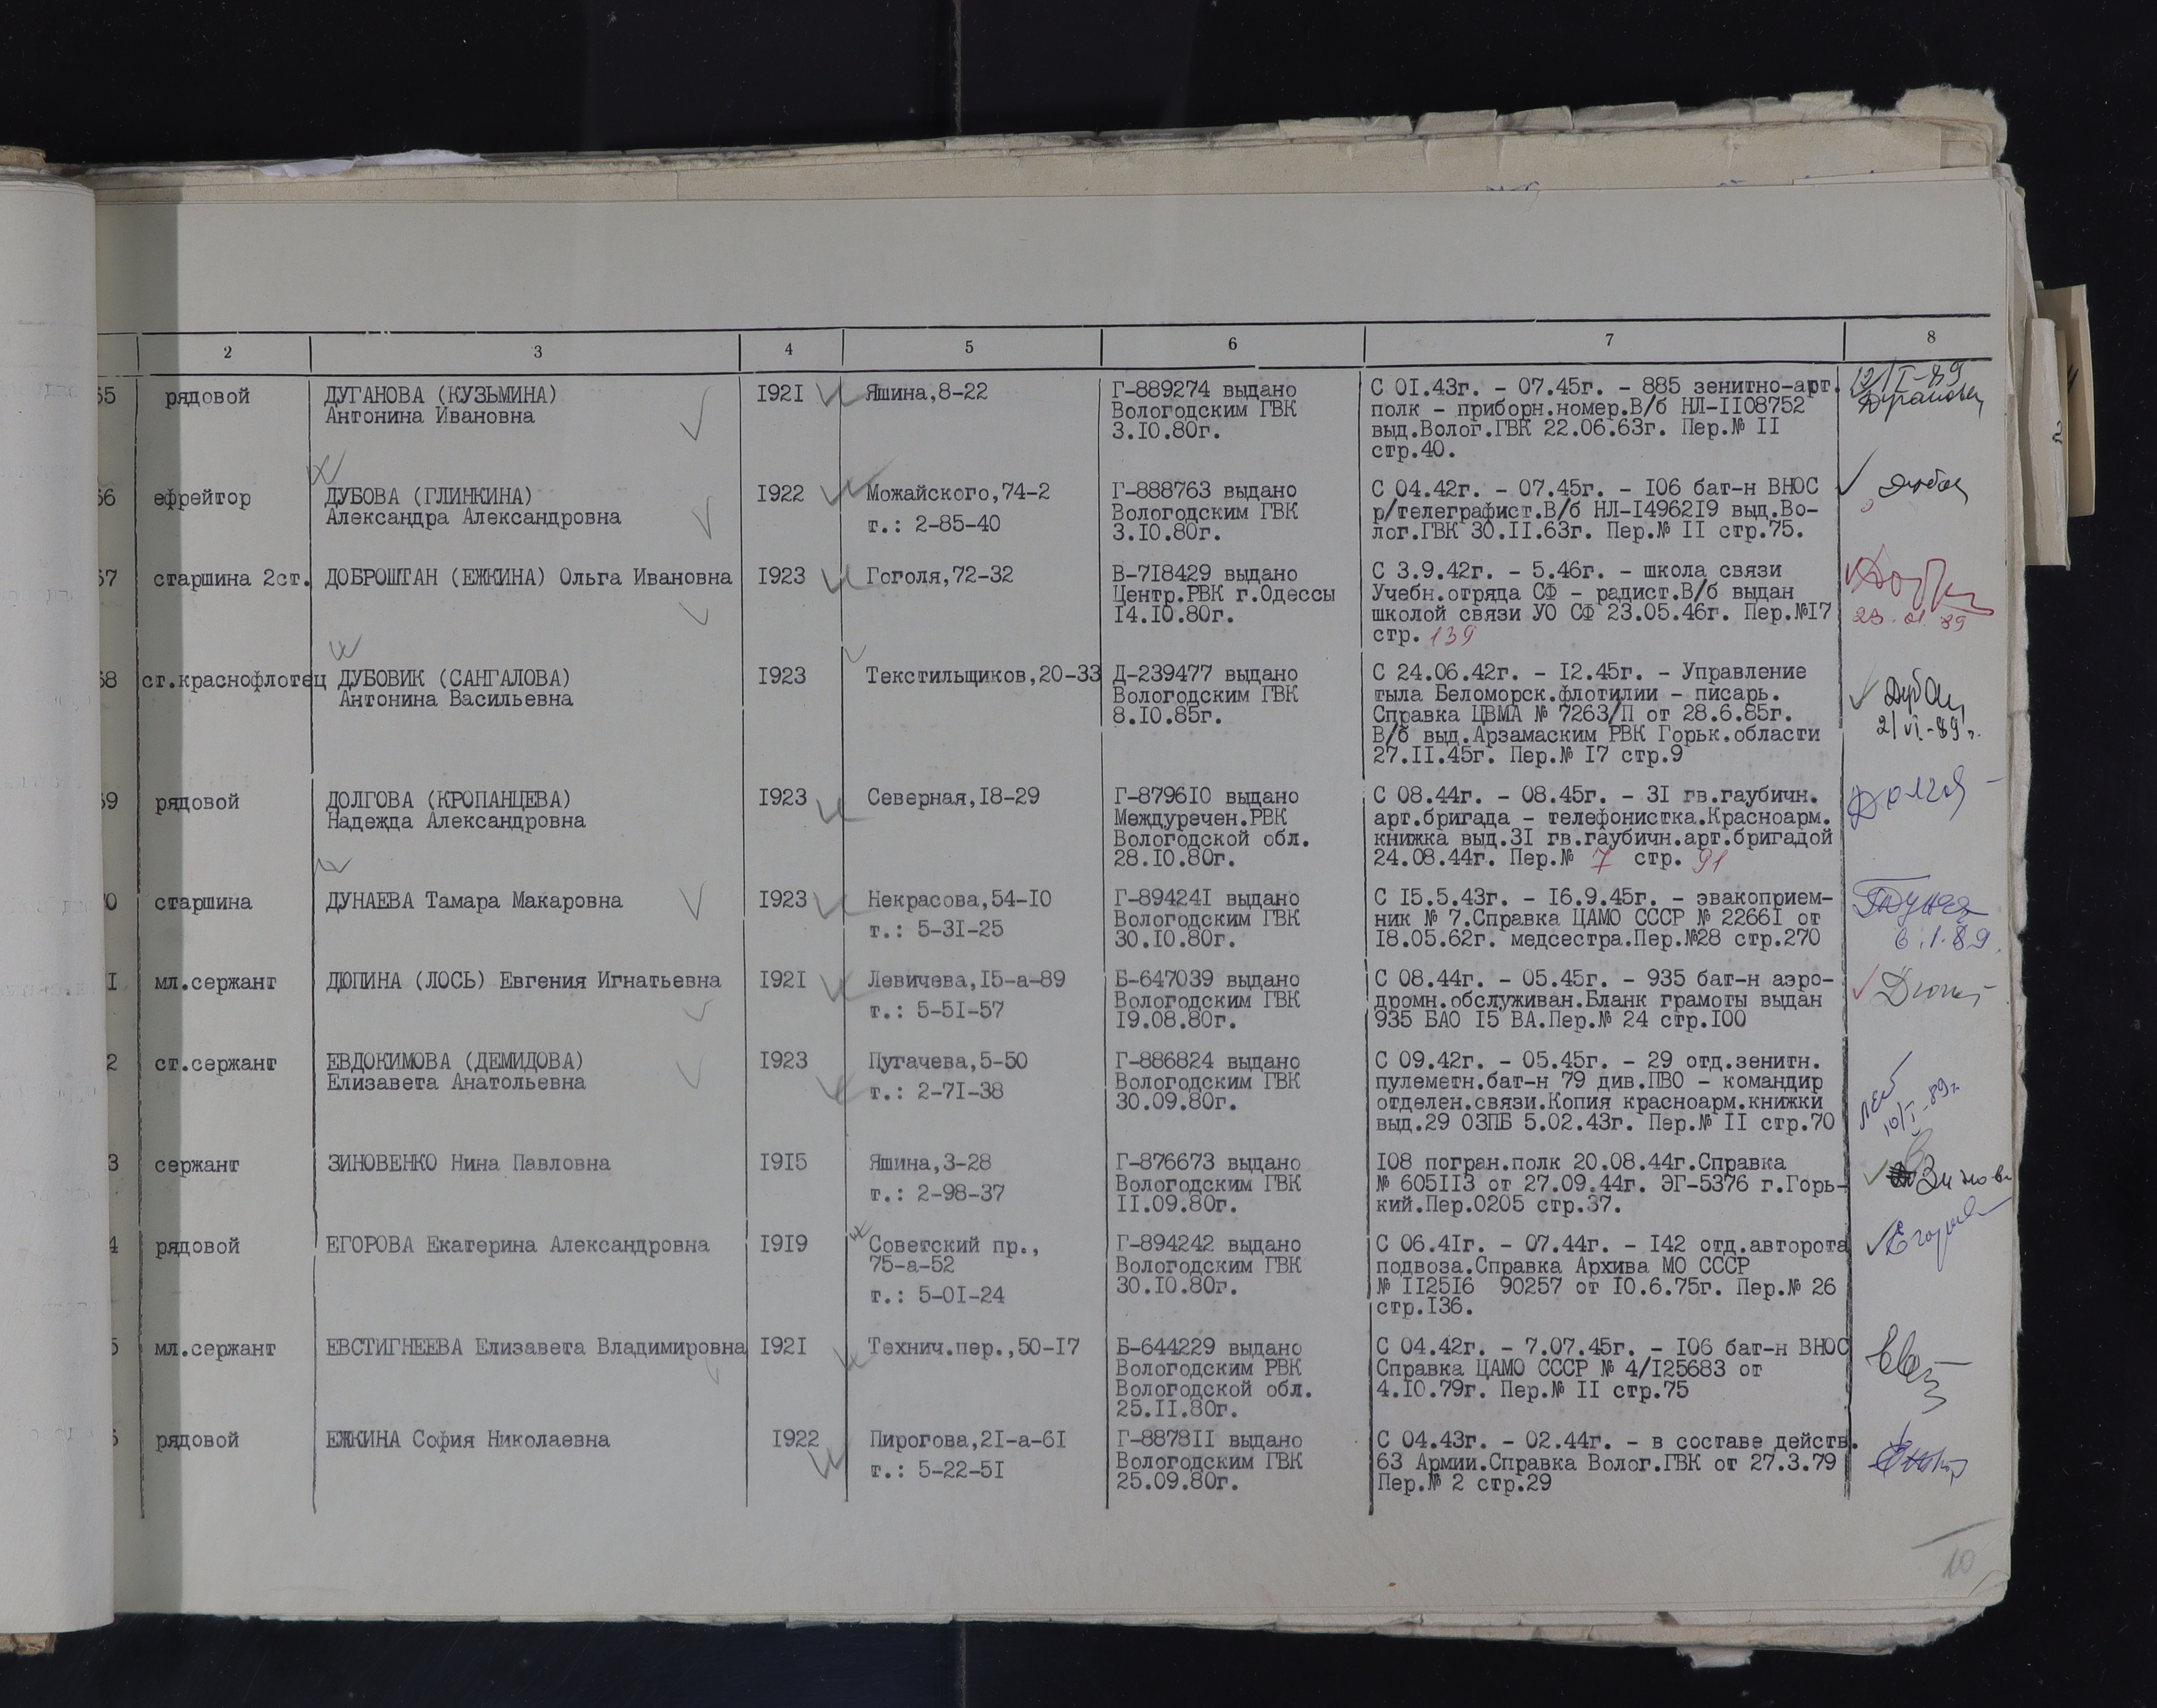 2 3 4 5 6 7 8
65 рядовой ДУГАНОВА (КУЗЬМИНА) I92I Яшина,8-22 Г-889274 выдано С 0I.43г. - 07.45г. - 885 зенитно-арт. 12/I-89
Антонина Ивановна Вологодским ГВК полк - приборн.номер.В/б НЛ-II08752
3.I0.80г. выд.Волог.ГВК 22.06.63г. Пер.№ II
стр.40.
66 ефрейтор ДУБОВА (ГЛИНКИНА) I922 Можайского,74-2 Г-888763 выдано С 04.42г. - 07.45г. - I06 бат-н ВНОС
Александра Александровна т.: 2-85-40 Вологодским ГВК р/телеграфист.В/б НЛ-I4962I9 выд.Во-
3.I0.80г. лог.ГВК 30.II.63г. Пер.№ II стр.75.
67 старшина 2ст. ДОБРОШТАН (ЕЖКИНА) Ольга Ивановна I923 Гоголя,72-32 В-7I8429 выдано С 3.9.42г. - 5.46г. - школа связи
Центр.РВК г.Одессы Учебн.отряда СФ - радист.В/б выдан
I4.I0.80г. школой связи УО СФ 23.05.46г. Пер.№I7 23.01.89
стр. 139
68 ст.краснофлотец ДУБОВИК (САНГАЛОВА) I923 Текстильщиков,20-33 Д-239477 выдано С 24.06.42г. - I2.45г. - Управление
Антонина Васильевна Вологодским ГВК тыла Беломорск.флотилии - писарь.
8.I0.85г. Справка ЦВМА № 7263/П от 28.6.85г. 2/VI-89г.
В/б выд.Арзамаским РВК Горьк.области
27.II.45г. Пер.№ I7 стр.9
69 рядовой ДОЛГОВА (КРОПАНЦЕВА) I923 Северная,I8-29 Г-8796I0 выдано С 08.44г. - 08.45г. - 3I гв.гаубичн.
Надежда Александровна Междуречен.РВК арт.бригада - телефонистка.Красноарм.
Вологодской обл. книжка выд.3I гв.гаубичн.арт.бригадой
28.I0.80г. 24.08.44г. Пер.№ 7 стр. 91
0 старшина ДУНАЕВА Тамара Макаровна I923 Некрасова,54-I0 Г-89424I выдано С I5.5.43г. - I6.9.45г. - эвакоприем-
т.: 5-3I-25 Вологодским ГВК ник № 7.Справка ЦАМО СССР № 2266I от
30.I0.80г. I8.05.62г. медсестра.Пер.№28 стр.270 6.1.89.
I мл.сержант ДЮПИНА (ЛОСЬ) Евгения Игнатьевна I92I Левичева,I5-а-89 Б-647039 выдано С 08.44г. - 05.45г. - 935 бат-н аэро-
т.: 5-5I-57 Вологодским ГВК дромн.обслуживан.Бланк грамоты выдан
I9.08.80г. 935 БАО I5 ВА.Пер.№ 24 стр.I00
2 ст.сержант ЕВДОКИМОВА (ДЕМИДОВА) I923 Пугачева,5-50 Г-886824 выдано С 09.42г. - 05.45г. - 29 отд.зенитн.
Елизавета Анатольевна т.: 2-7I-38 Вологодским ГВК пулеметн.бат-н 79 див.ПВО - командир
30.09.80г. отделен.связи.Копия красноарм.книжки 10/I-89г.
выд.29 ОЗПБ 5.02.43г. Пер.№ II стр.70
3 сержант ЗИНОВЕНКО Нина Павловна I9I5 Яшина,3-28 Г-876673 выдано I08 погран.полк 20.08.44г.Справка
т.: 2-98-37 Вологодским ГВК № 605II3 от 27.09.44г. ЭГ-5376 г.Горь-
II.09.80г. кий.Пер.0205 стр.37.
4 рядовой ЕГОРОВА Екатерина Александровна I9I9 Советский пр., Г-894242 выдано С 06.4Iг. - 07.44г. - I42 отд.авторота
75-а-52 Вологодским ГВК подвоза.Справка Архива МО СССР
т.: 5-0I-24 30.I0.80г. № II25I6 90257 от I0.6.75г. Пер.№ 26
стр.I36.
5 мл.сержант ЕВСТИГНЕЕВА Елизавета Владимировна I92I Технич.пер.,50-I7 Б-644229 выдано С 04.42г. - 7.07.45г. - I06 бат-н ВНОС
Вологодским РВК Справка ЦАМО СССР № 4/I25683 от
Вологодской обл. 4.I0.79г. Пер.№ II стр.75
25.II.80г.
6 рядовой ЕЖКИНА София Николаевна I922 Пирогова,2I-а-6I Г-8878II выдано С 04.43г. - 02.44г. - в составе действ.
т.: 5-22-5I Вологодским ГВК 63 Армии.Справка Волог.ГВК от 27.3.79
25.09.80г. Пер.№ 2 стр.29
10